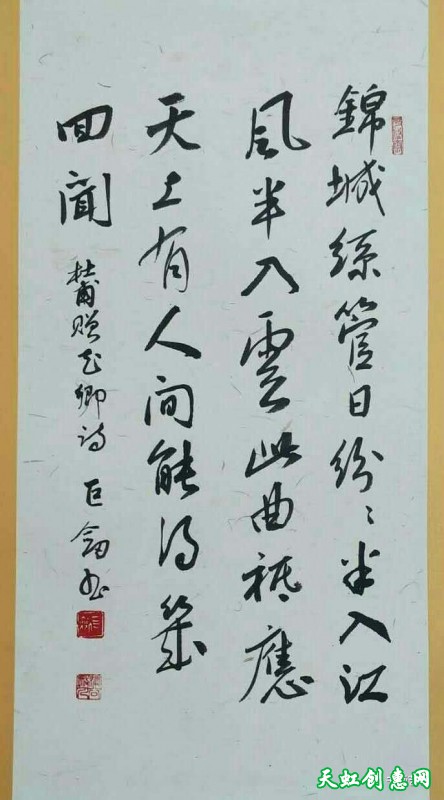 錦城絲管日紛〻半入江
風半入雲此曲祇應
天上有人間能得幾
回聞
杜甫贈花卿詩 巨劍书
天虹创惠网